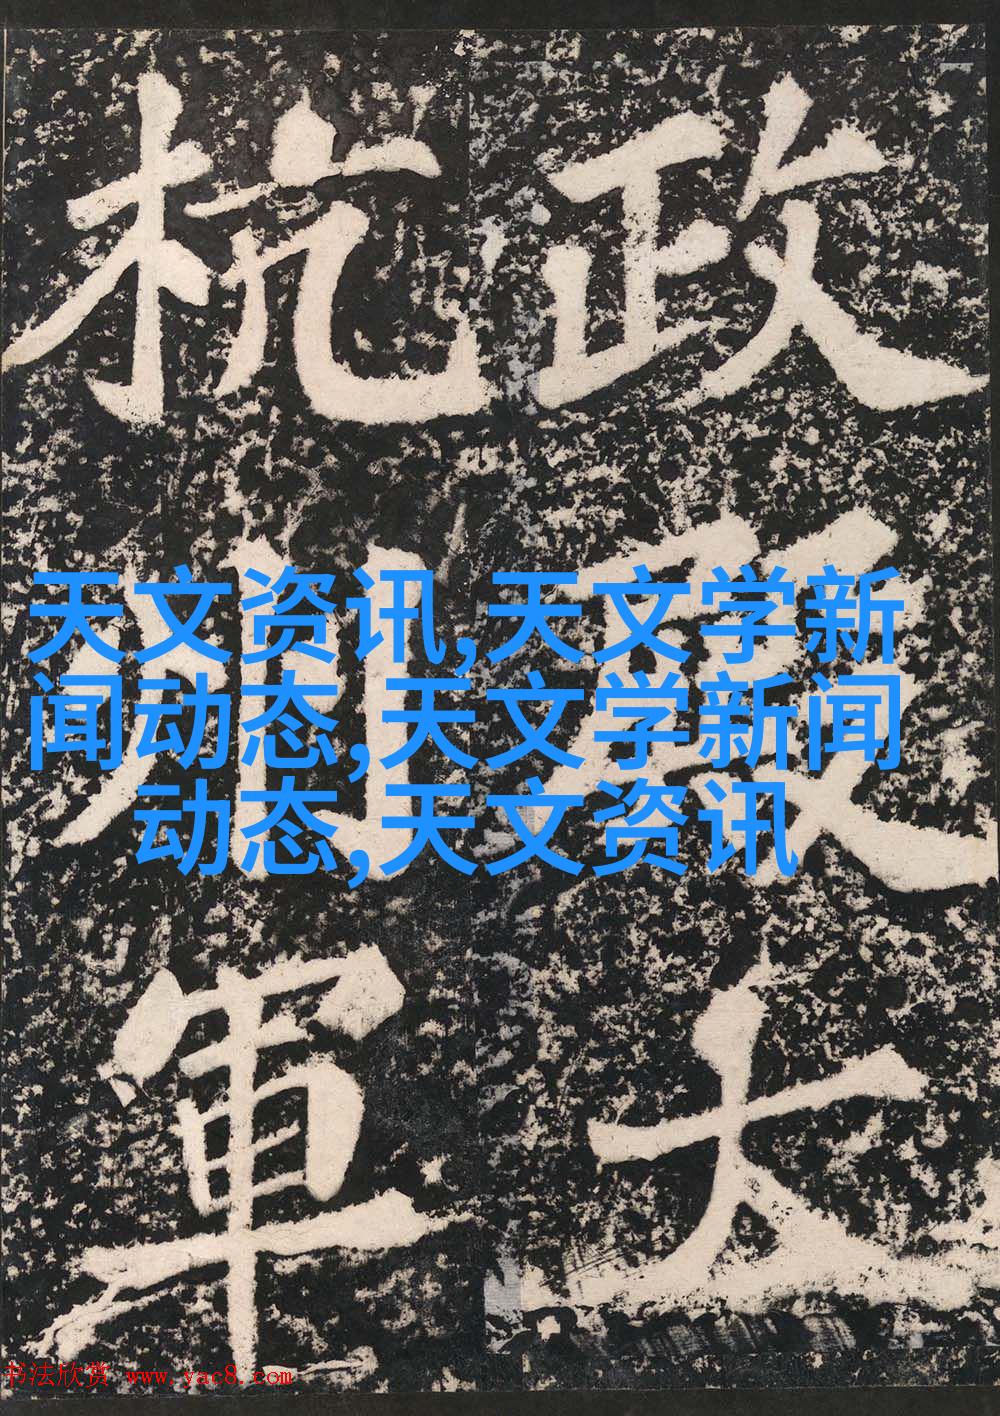 政
大
杭州軍
天文资讯,天文学新
闻动态,天文学新闻
动态,天文资讯
书法欣赏 www.yac8.com